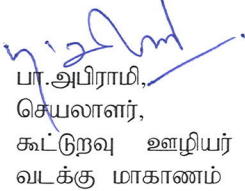 பா.அபிராமி,
செயலாளர்,
கூட்டுறவு ஊழியர்
வடக்கு மாகாணம்